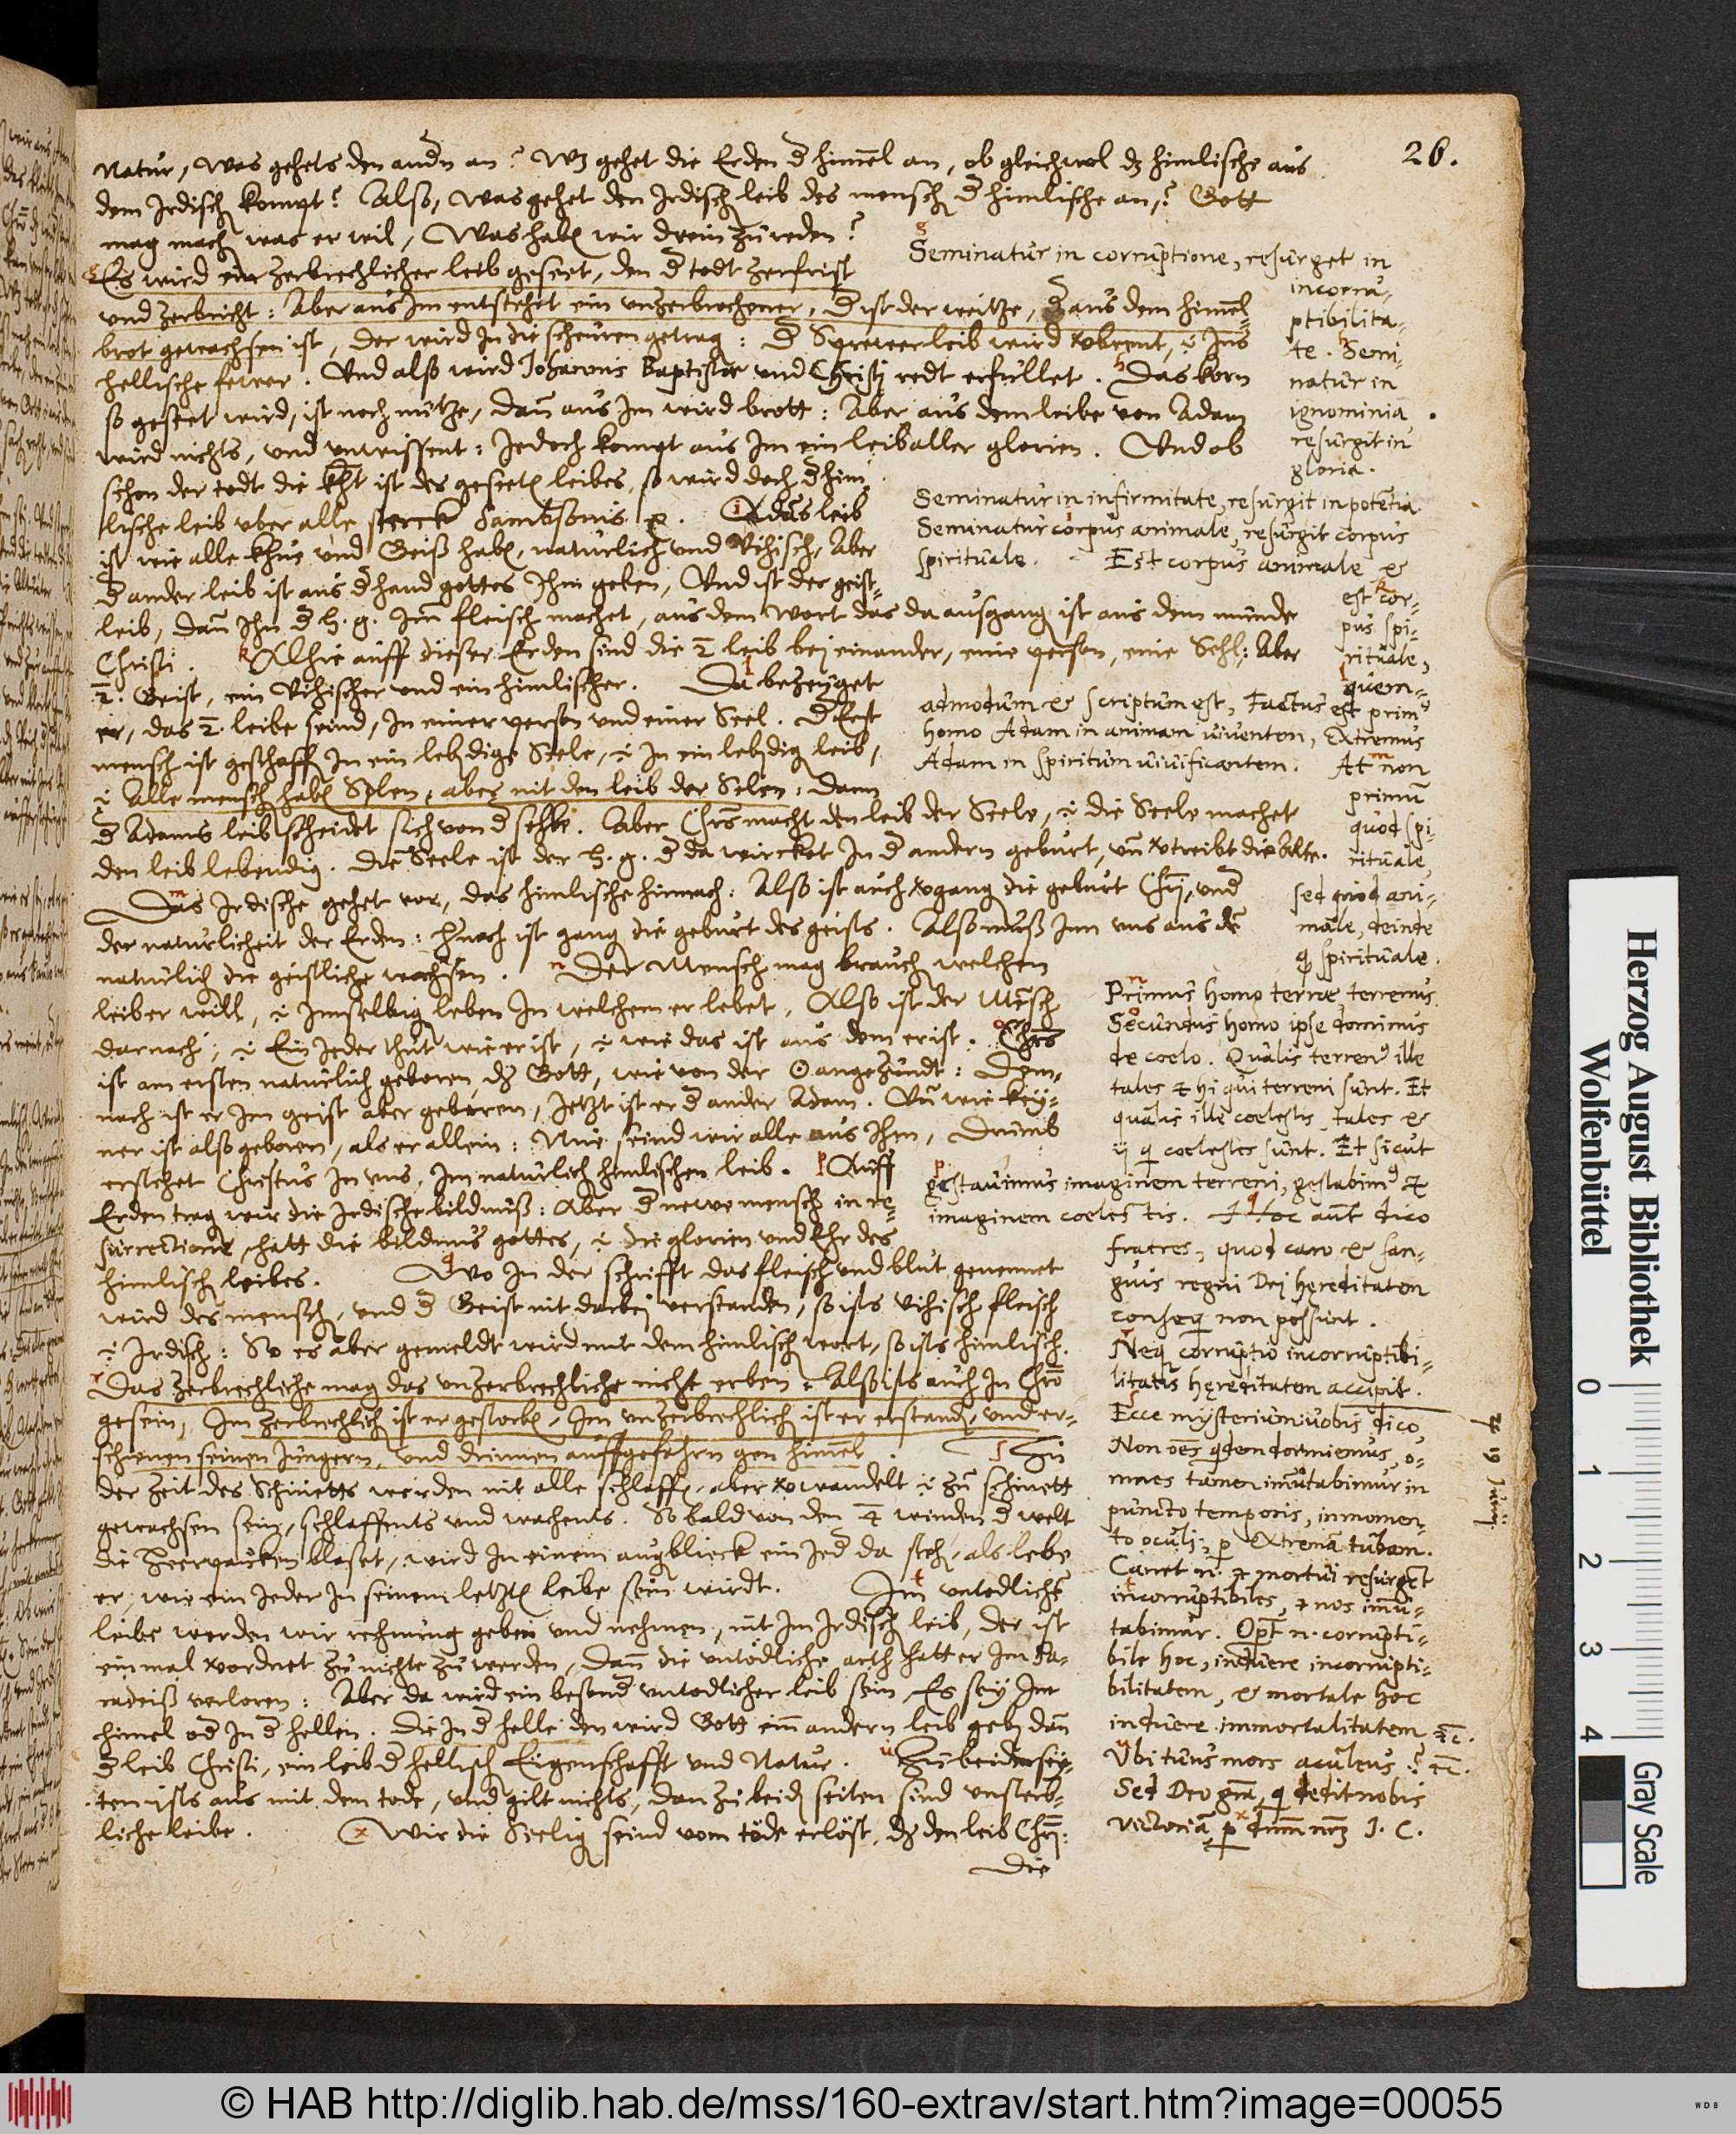 26.
Natur, Was gehets den andn an? Wz gehet die Erden d himel an, ob gleichwol dz himlische aus
dem Irdisch kompt? Also, Was gehet den Irdisch leib des mensch d himlische an? Gott
mag mach was er wil, Was habe wir drein zu reden?
Es wird ein zerbrechlicher leib geseet, den d todt zerfrist
und zerbricht: Aber aus Im entstehet ein unzerbrochener, d ist der weitze, d aus dem himel-
brot gewachsen ist, der wird In die scheuren getrag: d Sprewerleib wird vbrent, i Ins
hellische fewer. Und also wird Johannis Baptistae und Christj redt erfullet. h Das korn
so geseet wird, ist noch nütze, dan aus Im wird brott: Aber aus dem leibe von Adam
wird nichts, und unwissent: Jedoch kompt aus Im ein leib aller glorien. Und ob
schon der todt die kfft ist des geseete leibes, so wird doch d him-
lische leib uber alle sterck Sambsonis. i Adās leib
ist wie alle khue und Geiß habe, naturlich und Vihisch, Aber
d ander leib ist aus d hand gottes Ihm geben, Und ist der geist-
leib, dan Ihn d h. g. Im fleisch machet, aus dem Wort das da ausgang ist aus dem munde
Christi. k Alhie auff dieser Erden sind die 2 leib bej einander, eine person, eine Sehl: Aber
2. Geist, ein Vihischer und ein himlischer. l Da bezeuget
er, das 2. leibe seind, In einer person und einer Seel. D Erst
mensch ist geschaff In ein lebdige Seele, i In ein lebdig leib,
i Alle mensch habe Selen, aber nit den leib der Selen: Dann
d Adams leib scheidet sich von d selbe. Aber Chrs macht den leib der Seele, i die Seele machet
den leib lebendig. Die Seele ist der h. g. d da wircket In d andern geburt, un vtreibt die Alte.
m Das Irdische gehet vor, das himlische hinnach: Also ist auch vgang die geburt Chrj, und
der naturlicheit der Erden: hnach ist gang die geburt des geists. Also muß Inn uns aus de
naturlich die geistliche wachsen. n Der Mensch mag brauch welchen
leib er will, i Imselbig leben In welchem er lebet, Also ist der Mesch
darnach, i Ein Jeder thut wie er ist, i wie das ist aus dem er ist. o Chrs
ist am ersten naturlich geboren dz Gott, wie von der ☉ angezündt: Dem-
nach ist er Im geist aber geboren, Jetzt ist er d ander Adam. Un wie key-
ner ist also geboren, als er allein: Nue seind wir alle aus Ihm, Drumb
erstehet Christus In uns, Im naturlich himlischen leib. p Auff
Erden trag wir die Irdische bildnuß: Aber d newe mensch in re-
surrectione, hatt die bildnus gottes, i die glorien und Ehr des
himlisch leibes. q Wo In der schrifft das fleisch und blut genennet
wird des mensch, und d Geist nit darbej verstanden, so ists vihisch fleisch
i Irdisch: So es aber gemeldt wird mit dem himlisch wort, so ists himlisch.
r Das zerbrechliche mag das unzerbrechliche nicht erben: Also ists auch In Chro
gesein, Im zerbrechlich ist er gestorbe, Im unzerbrechlich ist er erstand, und er-
schienen seinen Jungern, und drinnen auffgefahrn gen himel. s Zu
der zeit des Schnietts werden nit alle schlaffe, aber vwandelt i zu schniett
gewachsen sein, schlaffents und wachents. So bald von den 4 winden d welt
die Heerpaucken blaset, wird In einem augblieck ein Jed da steh, als lebe
er, wie ein Jeder In seinem letzte leibe sein wirdt. t Im untodliche
leibe werden wir rechnung geben und nehmen, nit Im Irdisch leib, der ist
ein mal vordnet zu nichte zu werden, Dann die untödliche arth hatt er Im Pa-
radeiß verloren: Aber da wird ein besond untodlicher leib sein, Es sey Im
himel od In d hellen. Die In d helle den wird Gott ein andern leib geb dan
d leib Christi, ein leib d hellisch Eigenschafft und Natur. u Zu beider sey-
ten ists aus mit dem tode, und gilt nichts, dan zu beid seiten sind unsterb-
liche leibe. x Wir die Seelig seind vom töde erlöst, dz den leib Chrj:
Die
g
Seminatur in corruptione, resurget in
incorru-
ptibilita-
te. h Semi-
natur in
ignominia
resurgit in
gloria.
Seminatur in infirmitate, resurgit in potetia
Seminatur corpus animale, resurgit corpus
spirituale. Est corpus animale et
est cor-
pus spi-
rituale,
quem-
admodum et scriptum est, Factus est prim9
homo Adam in animam viventem, Extremus
Adam in spiritum vivificantem. m At non
primu
quod spi-
rituale,
sed quod ani-
male, deinde
q spirituale.
n Primus homo terrae terrenus.
Secundus homo ipse dominus
de coelo. Qualis terren9 ille
tales et hi qui terreni sunt. Et
qualis ille coelestis, tales et
ij q coelestes sunt. Et sicut
p gestavimus imaginem terreni, gestabim9 et
imaginem coelestis. q Hoc aut dico
fratres, quod caro et san-
guis regni Dej hęreditatem
conseq non possunt.
Neq corruptio incorruptibi-
litatis hęreditatem accipit.
Ecce mysterium vobis dico,
Non oēs qdem dormiemus, o-
mnes tamen imutabimur in
puncto temporis, in momen-
to oculj, p Extremā tubam.
Canet n. et mortui resurget
incorruptibiles, et nos imu-
tabimur. Oprt n. corrupti-
bile hoc, induere incorrupti-
bilitatem, et mortale hoc
induere immortalitatem etc.
Ubi tuus mors aculeus? etc.
Sed Deo gra, q dedit nobis
victoriā p dnm nrm J. C.
19 Junij
Herzog August Bibliothek
Wolfenbüttel
0 1 2 3 4
Gray Scale
© HAB http://diglib.hab.de/mss/160-extrav/start.htm?image=00055
WDB